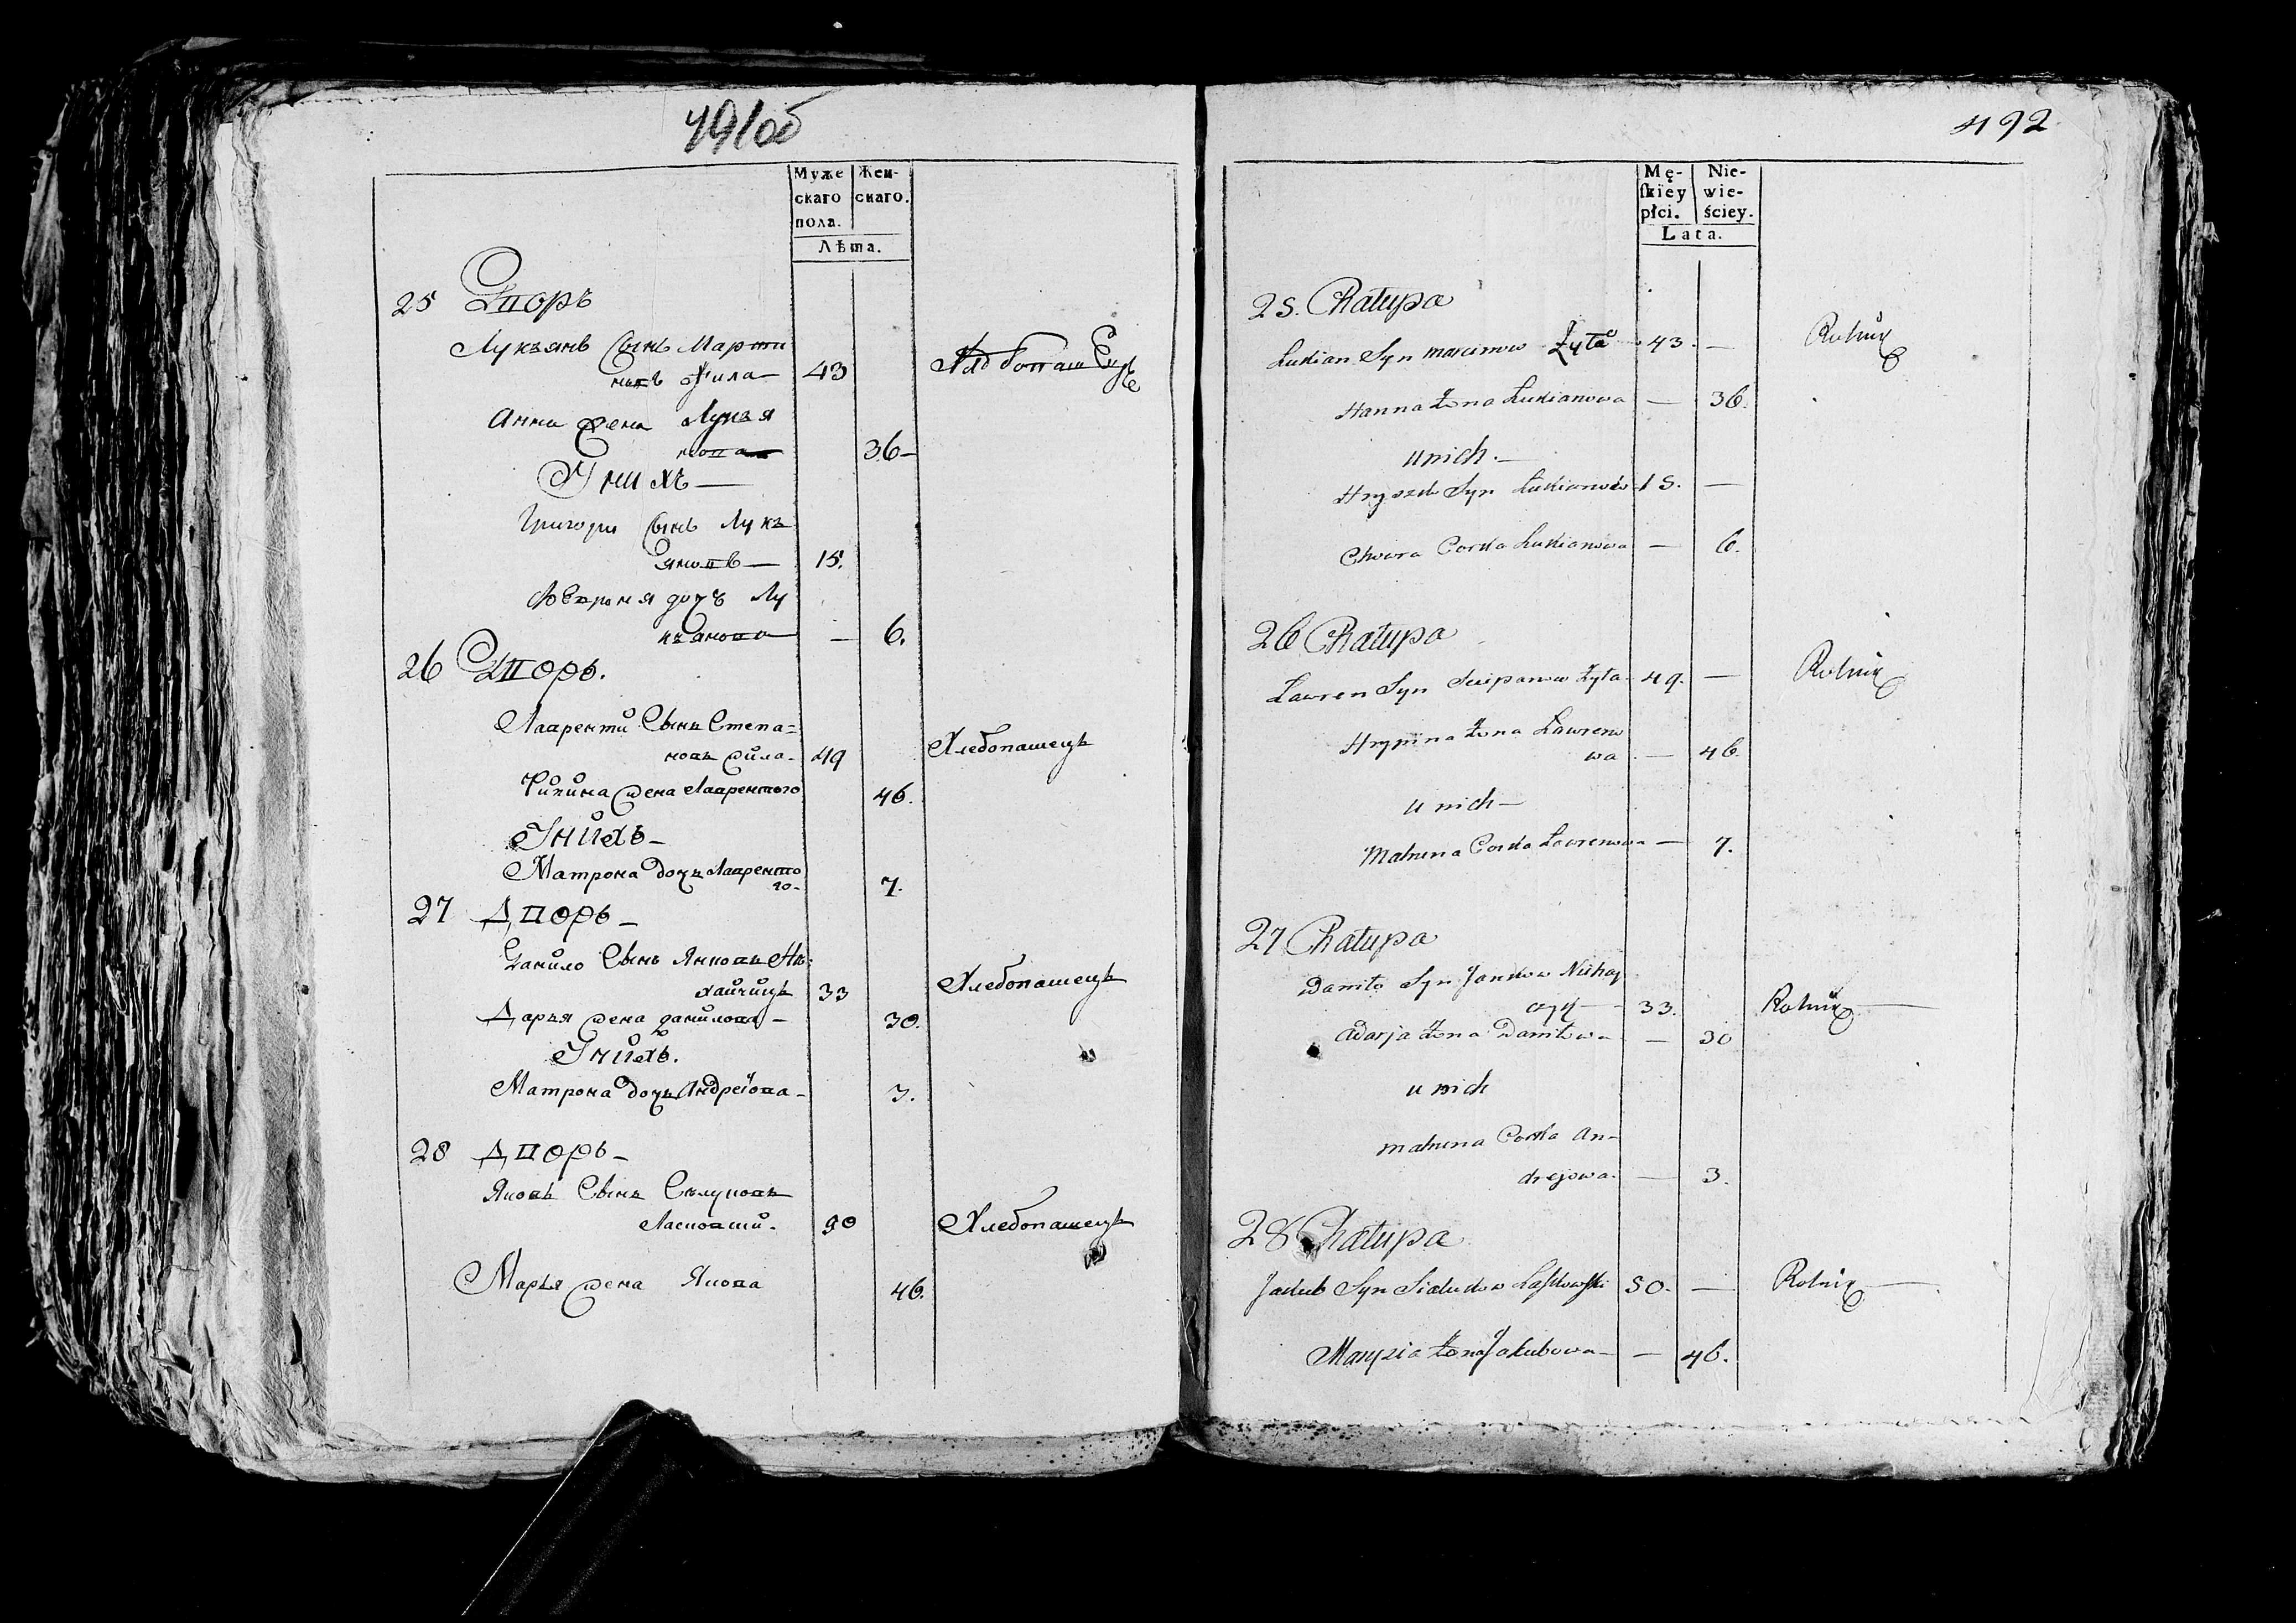 491об
Муже
скаго
пола.
Жен-
скаго.
Лѣта.
25 Дворъ
Лукъянъ Сынъ Марти
новъ Жила 43 Хлебопашецъ
Анна жена Лукъя
нова 36
У нихъ
Григори Сынъ Лукъ
яновъ 15.
Феврония дочъ Лу
къянова — 6.
26 Дворъ.
Лаврентий Сынъ Степа=
новъ жила 49 Хлебопашецъ
жена Лаврентого 46.
У нихъ
Матрона дочъ Лавренто
го 7.
27 Дворъ
Данило Сынъ Янковъ Ни-
хайчицъ 33 Хлебопашецъ
Дарья жена данилова 30.
У нихъ.
Матрона дочъ Андреюва 3.
28 Дворъ
Яковъ Сынъ
90 Хлебопашецъ
Марья жена Якова 46.
492
Mę-
ſkiéy
płci.
Nie-
wie-
ściey.
Lata.
25. Chałupa
Łukian Syn Marcinow Żyła 43. — Rolnik
Hanna żona Łukianowa — 36.
u nich. —
Hryszko Syn Łukianow 15. —
Chwora Corka Łukianowa — 6.
26 Chałupa
Ławren Syn Scipanow Żyła 49. — Rolnik
Hrypina żona Ławreno
wa — 46.
u nich —
Matruna Corka Ławrenowa — 7.
27 Chałupa
Daniło Syn Jankow Nichay
czyk 33. Rolnik
Adarja żona Daniłowa — 30
u nich
Matruna Corka An-
drejowa. — 3.
28 Chałupa
Jakub Syn Siałukow Laſkowſki 50. — Rolnik
Marysia żona Jakubowa — 46.